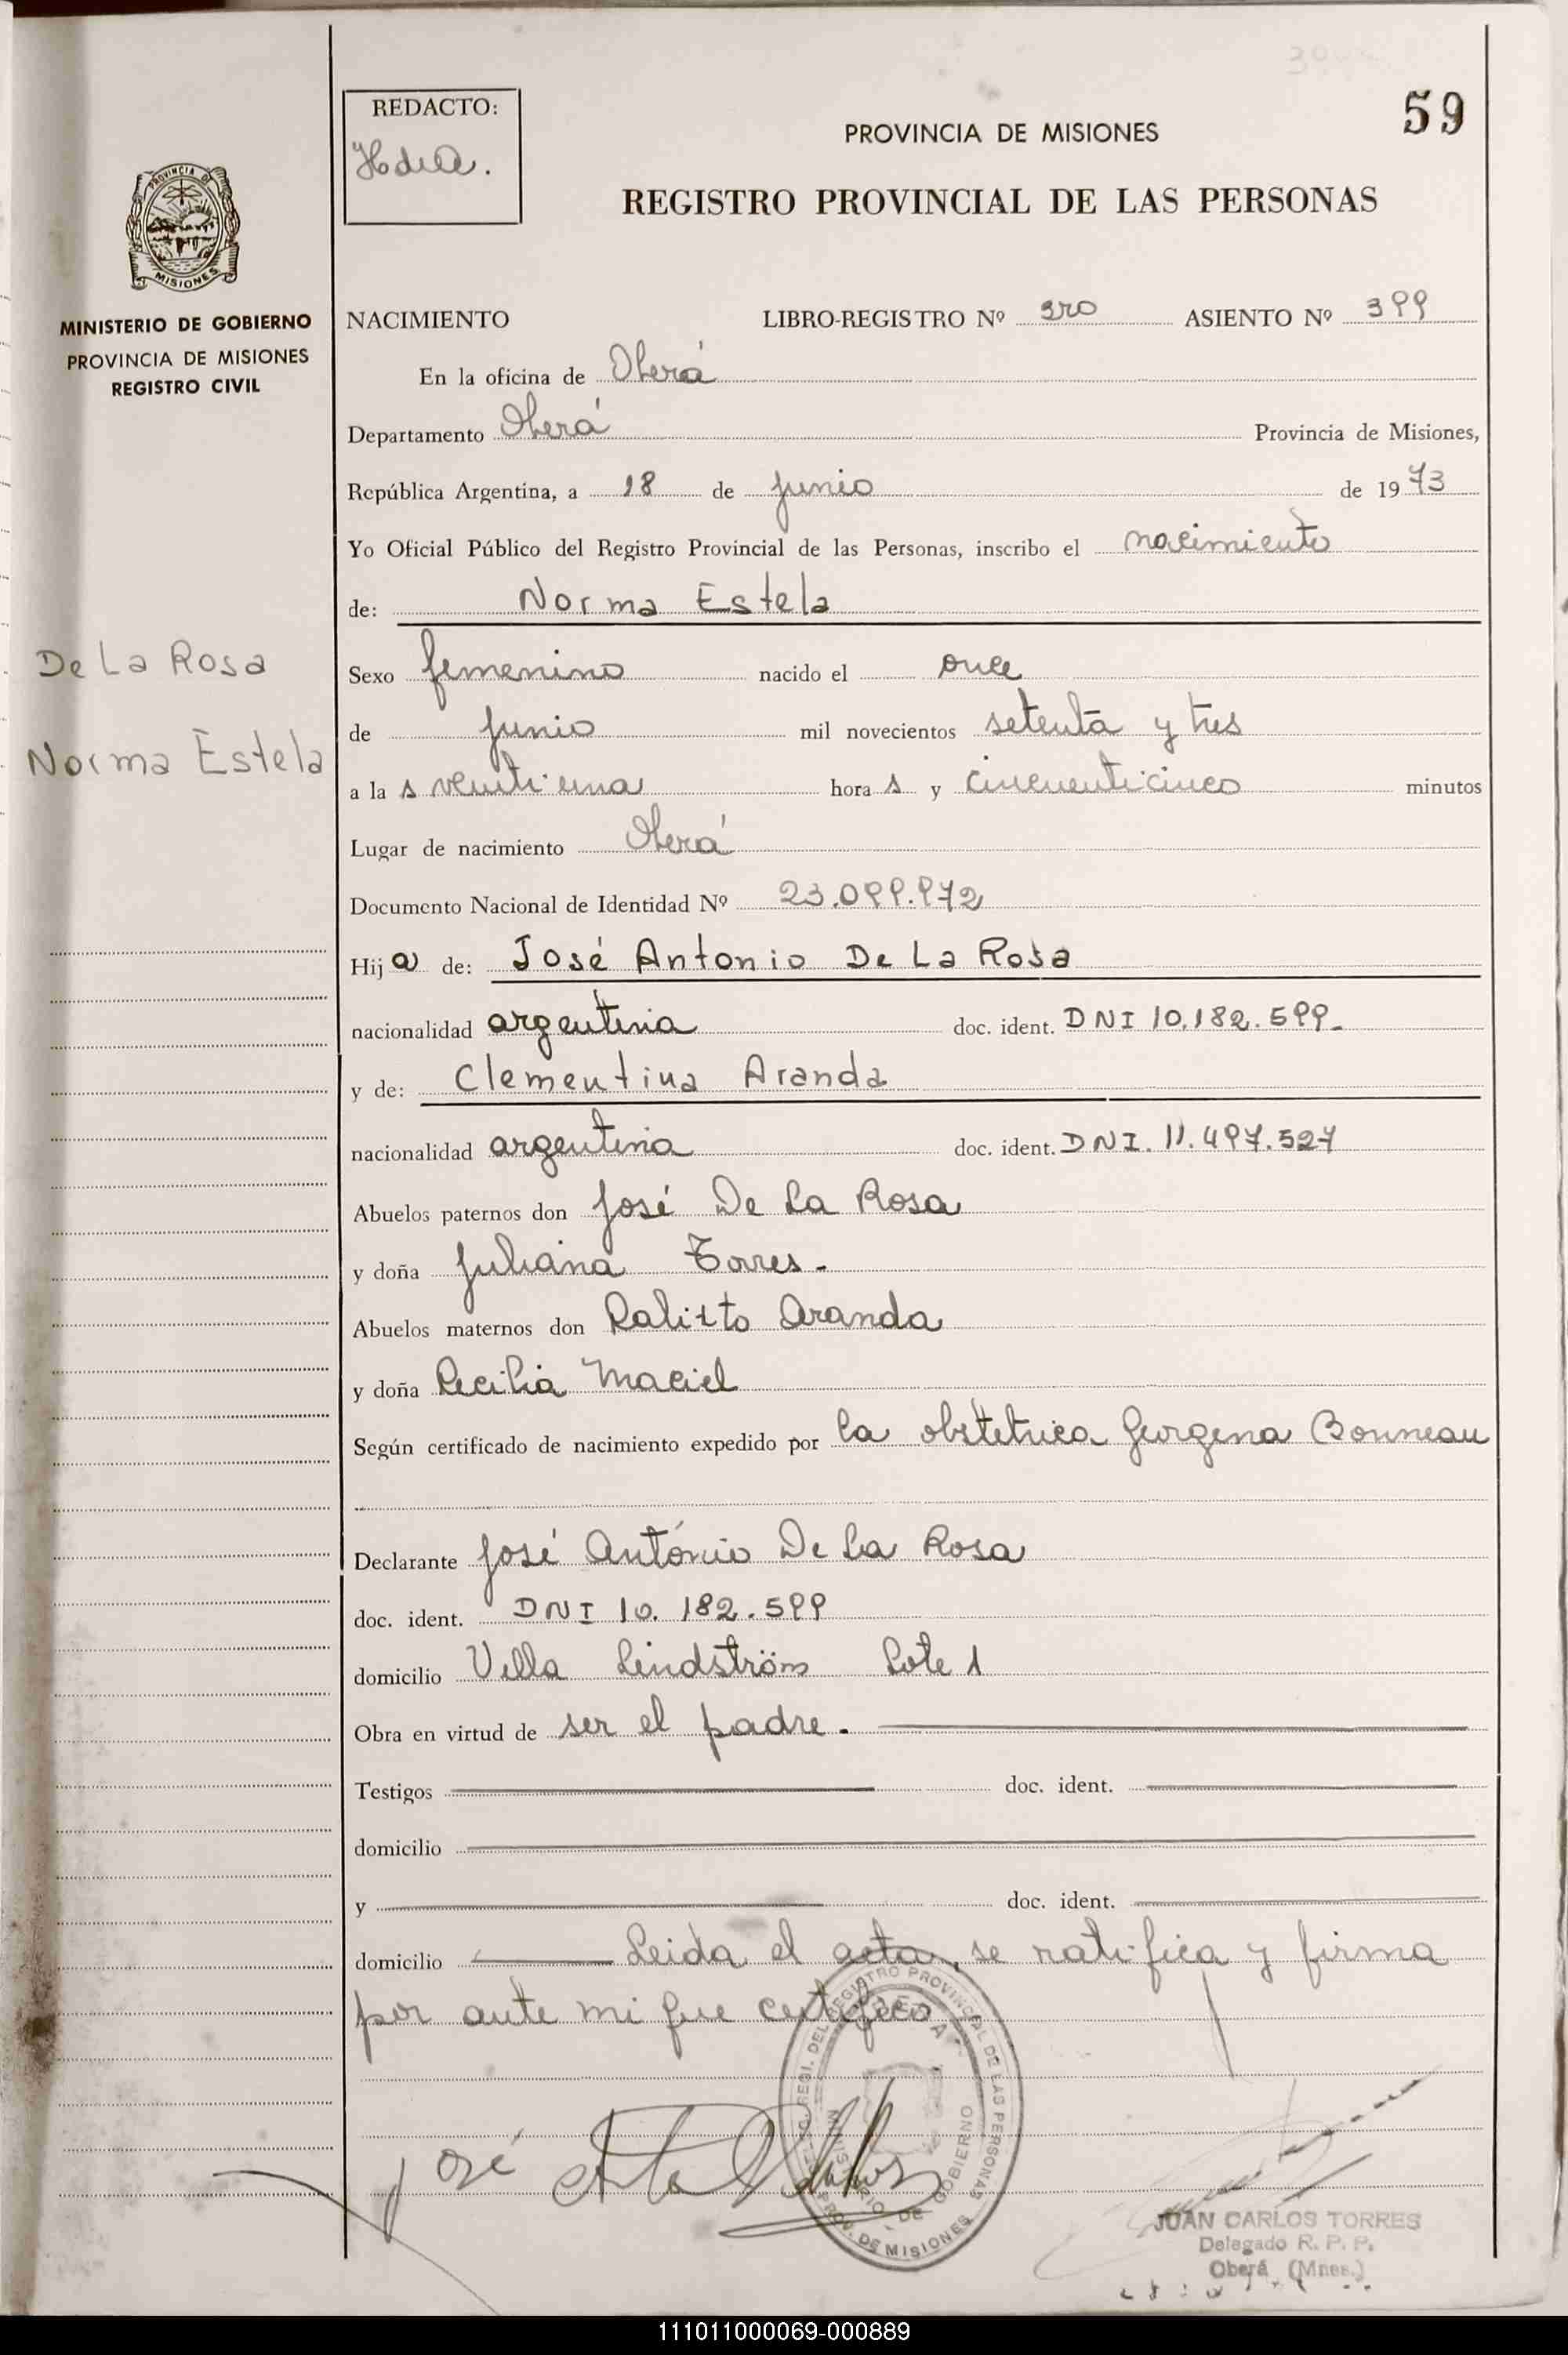 59
REDACTO:
PROVINCIA DE MISIONES
REGISTRO PROVINCIAL DE LAS PERSONAS
PROVINCIA DE
MISIONES
MINISTERIO DE GOBIERNO
PROVINCIA DE MISIONES
REGISTRO CIVIL
NACIMIENTO LIBRO-REGISTRO Nº 3ro ASIENTO Nº 399
En la oficina de Oberá
Departamento Oberá Provincia de Misiones,
República Argentina, a 18 de junio de 1973
Yo Oficial Público del Registro Provincial de las Personas, inscribo el nacimiento
de: Norma Estela
De La Rosa
Norma Estela
Sexo femenino nacido el once
de junio mil novecientos setenta y tres
a la s veinti una hora s y cincuenticinco minutos
Lugar de nacimiento Oberá
Documento Nacional de Identidad Nº 23.099.972
Hij a de: José Antonio De La Rosa
nacionalidad argentina doc. ident. DNI 10.182.599.
y de: Clementina Aranda
nacionalidad argentina doc. ident. DNI. 11.497.527
Abuelos paternos don José De La Rosa
y doña Juliana Torres.
Abuelos maternos don Aranda
y doña Cecilia Maciel
Según certificado de nacimiento expedido por la obstetrica Georgena Bonneau
Declarante José António De La Rosa
doc. ident. DNI 10.182.599
domicilio Villa Lindström Lote 1
Obra en virtud de ser el padre.
Testigos doc. ident.
domicilio
y doc. ident.
domicilio Leida el acta, se ratifica y firma
por ante mi que certifico
José
REGISTRO PROVINCIAL DE LAS PERSONAS
OBERA
MINISTERIO DE GOBIERNO
PROV. DE MISIONES
JUAN CARLOS TORRES
Delegado R. P. P.
Oberá (Mnes.)
111011000069-000889